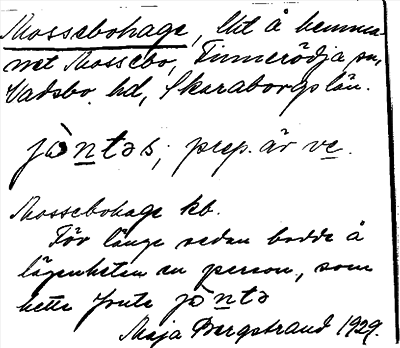 Mossebohage, lht å hemma-
net Mossebo, Tinnerödja sn,
Vadsbo hd, Skaraborgs län.
jòntəs; prep. är ve.
Mossebohage kb.
För länge sedan bodde å
lägenheten en person, som
hette Jonte jòntə
Maja Bergstrand 1929.